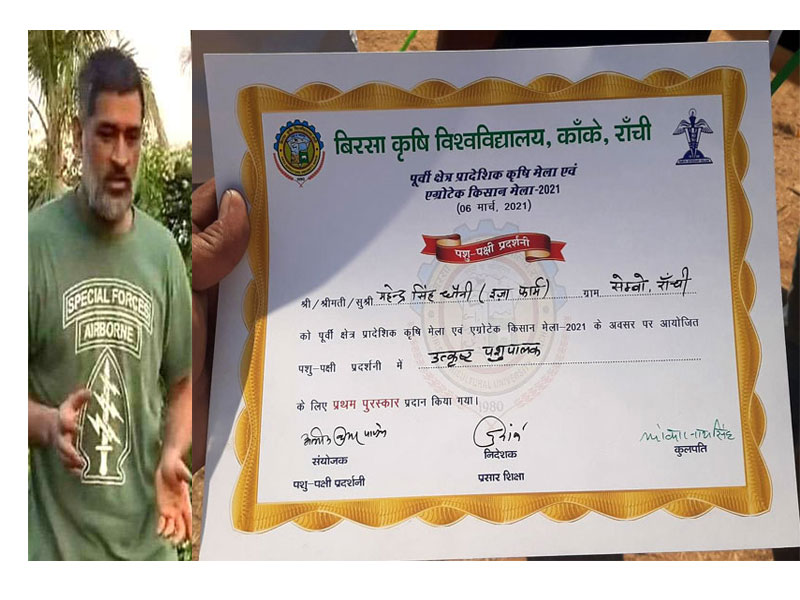 SPECIAL FORCES
AIRBORNE
बिरसा कृषि विश्वविद्यालय, काँके, राँची
पूर्वी क्षेत्र प्रादेशिक कृषि मेला एवं
एग्रोटेक किसान मेला-2021
(06 मार्च, 2021)
पशु-पक्षी प्रदर्शनी
श्री/श्रीमती/सुश्री महेन्द्र सिंह धौनी (इजा फार्म) ग्राम सेम्बो, राँची
को पूर्वी क्षेत्र प्रादेशिक कृषि मेला एवं एग्रोटेक किसान मेला-2021 के अवसर पर आयोजित
पशु-पक्षी प्रदर्शनी में उत्कृष्ट पशुपालक
के लिए प्रथम पुरस्कार प्रदान किया गया।
1980
संयोजक
पशु-पक्षी प्रदर्शनी
निदेशक
प्रसार शिक्षा
कुलपति